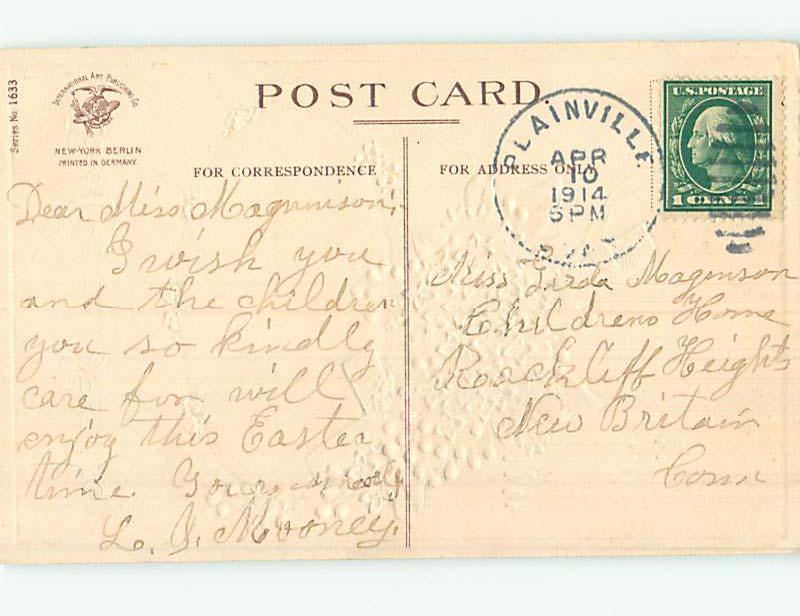 Series No. 1633
INTERNATIONAL ART PUBLISHING Co.
NEW-YORK BERLIN
PRINTED IN GERMANY
POST CARD
FOR CORRESPONDENCE
FOR ADDRESS ONLY
PLAINVILLE
APR
10
1914
6 PM
U.S. POSTAGE
1 CENT 1
Dear Miss Magnnison;
I wish you
and the children
you so kindly
care for will
enjoy this Easter
time. Yours
L. J. Mooney.
Miss Magnuson
Childrens Home
Rockcliff Heights
New Britain
Conn